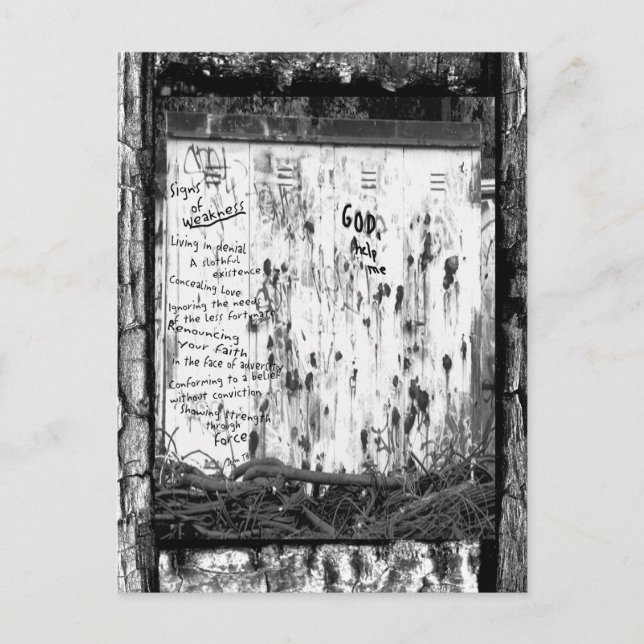 Signs
of
Weakness
Living in denial
A slothful
existence
Concealing Love
Ignoring the needs
of the less fortunate
Renouncing
your faith
in the face of adversity
Conforming to a belief
without conviction
Showing strength
through
Force
GOD,
help
me